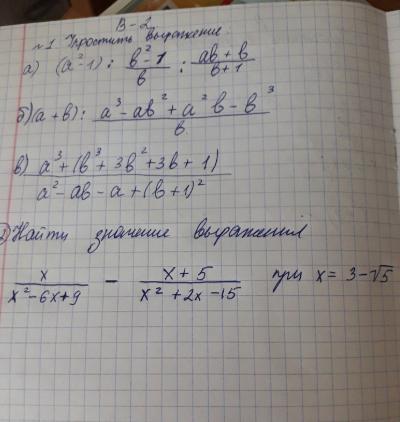 В-2
№1 Упростить выражение.
а) (a²-1) : (b²-1)/b : (ab+b)/(b+1)
б) (a+b) : (a³-ab²+a²b-b³)/b
в) (a³+(b³+3b²+3b+1))/(a²-ab-a+(b+1)²)
2) Найти значение выражения
x/(x²-6x+9) - (x+5)/(x²+2x-15) при x=3-√5